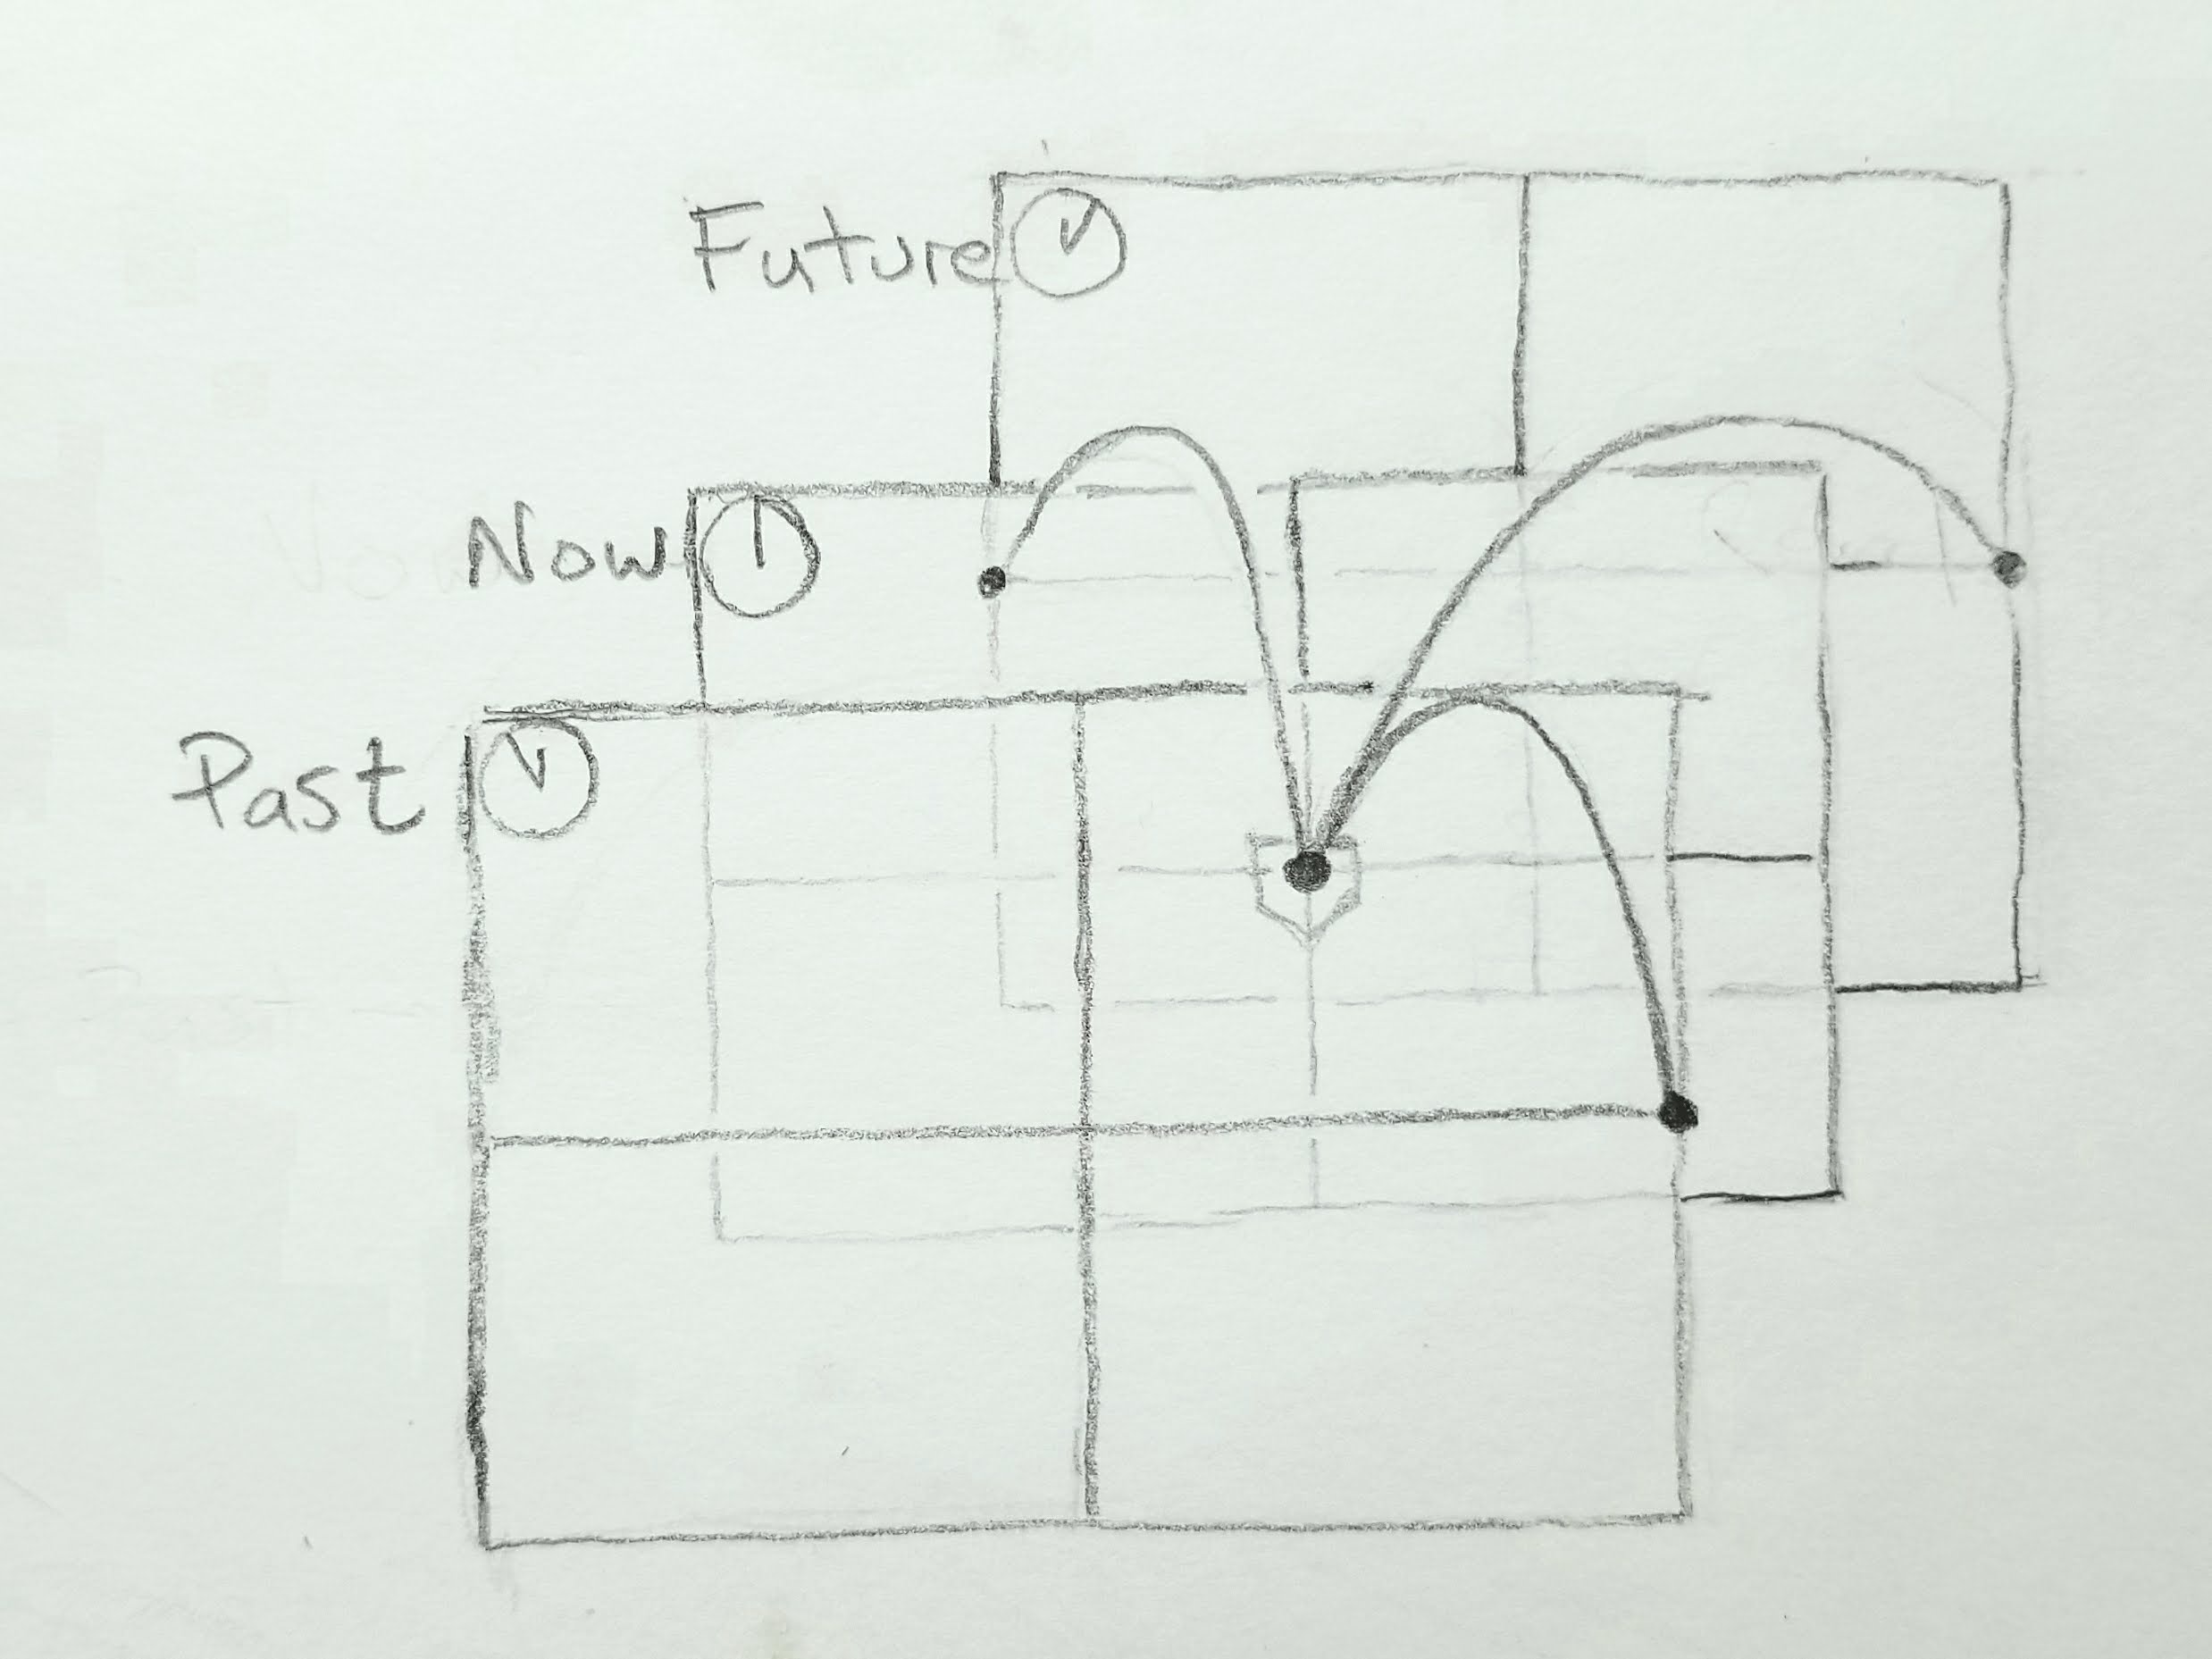 Future
Now
Past